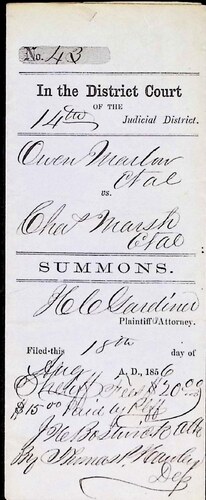 No. 43
In the District Court
OF THE
14th Judicial District.
Owen Marlow
Et al
vs.
Chas Marsh
Et al
SUMMONS.
H C Gardiner
Plaintiff Attorney.
Filed this 18th day of
Aug A. D., 1856
Sheriff Fees $20.00
$15.00 Paid by Plff
Clk
By Thomas P. Hawley
Dep